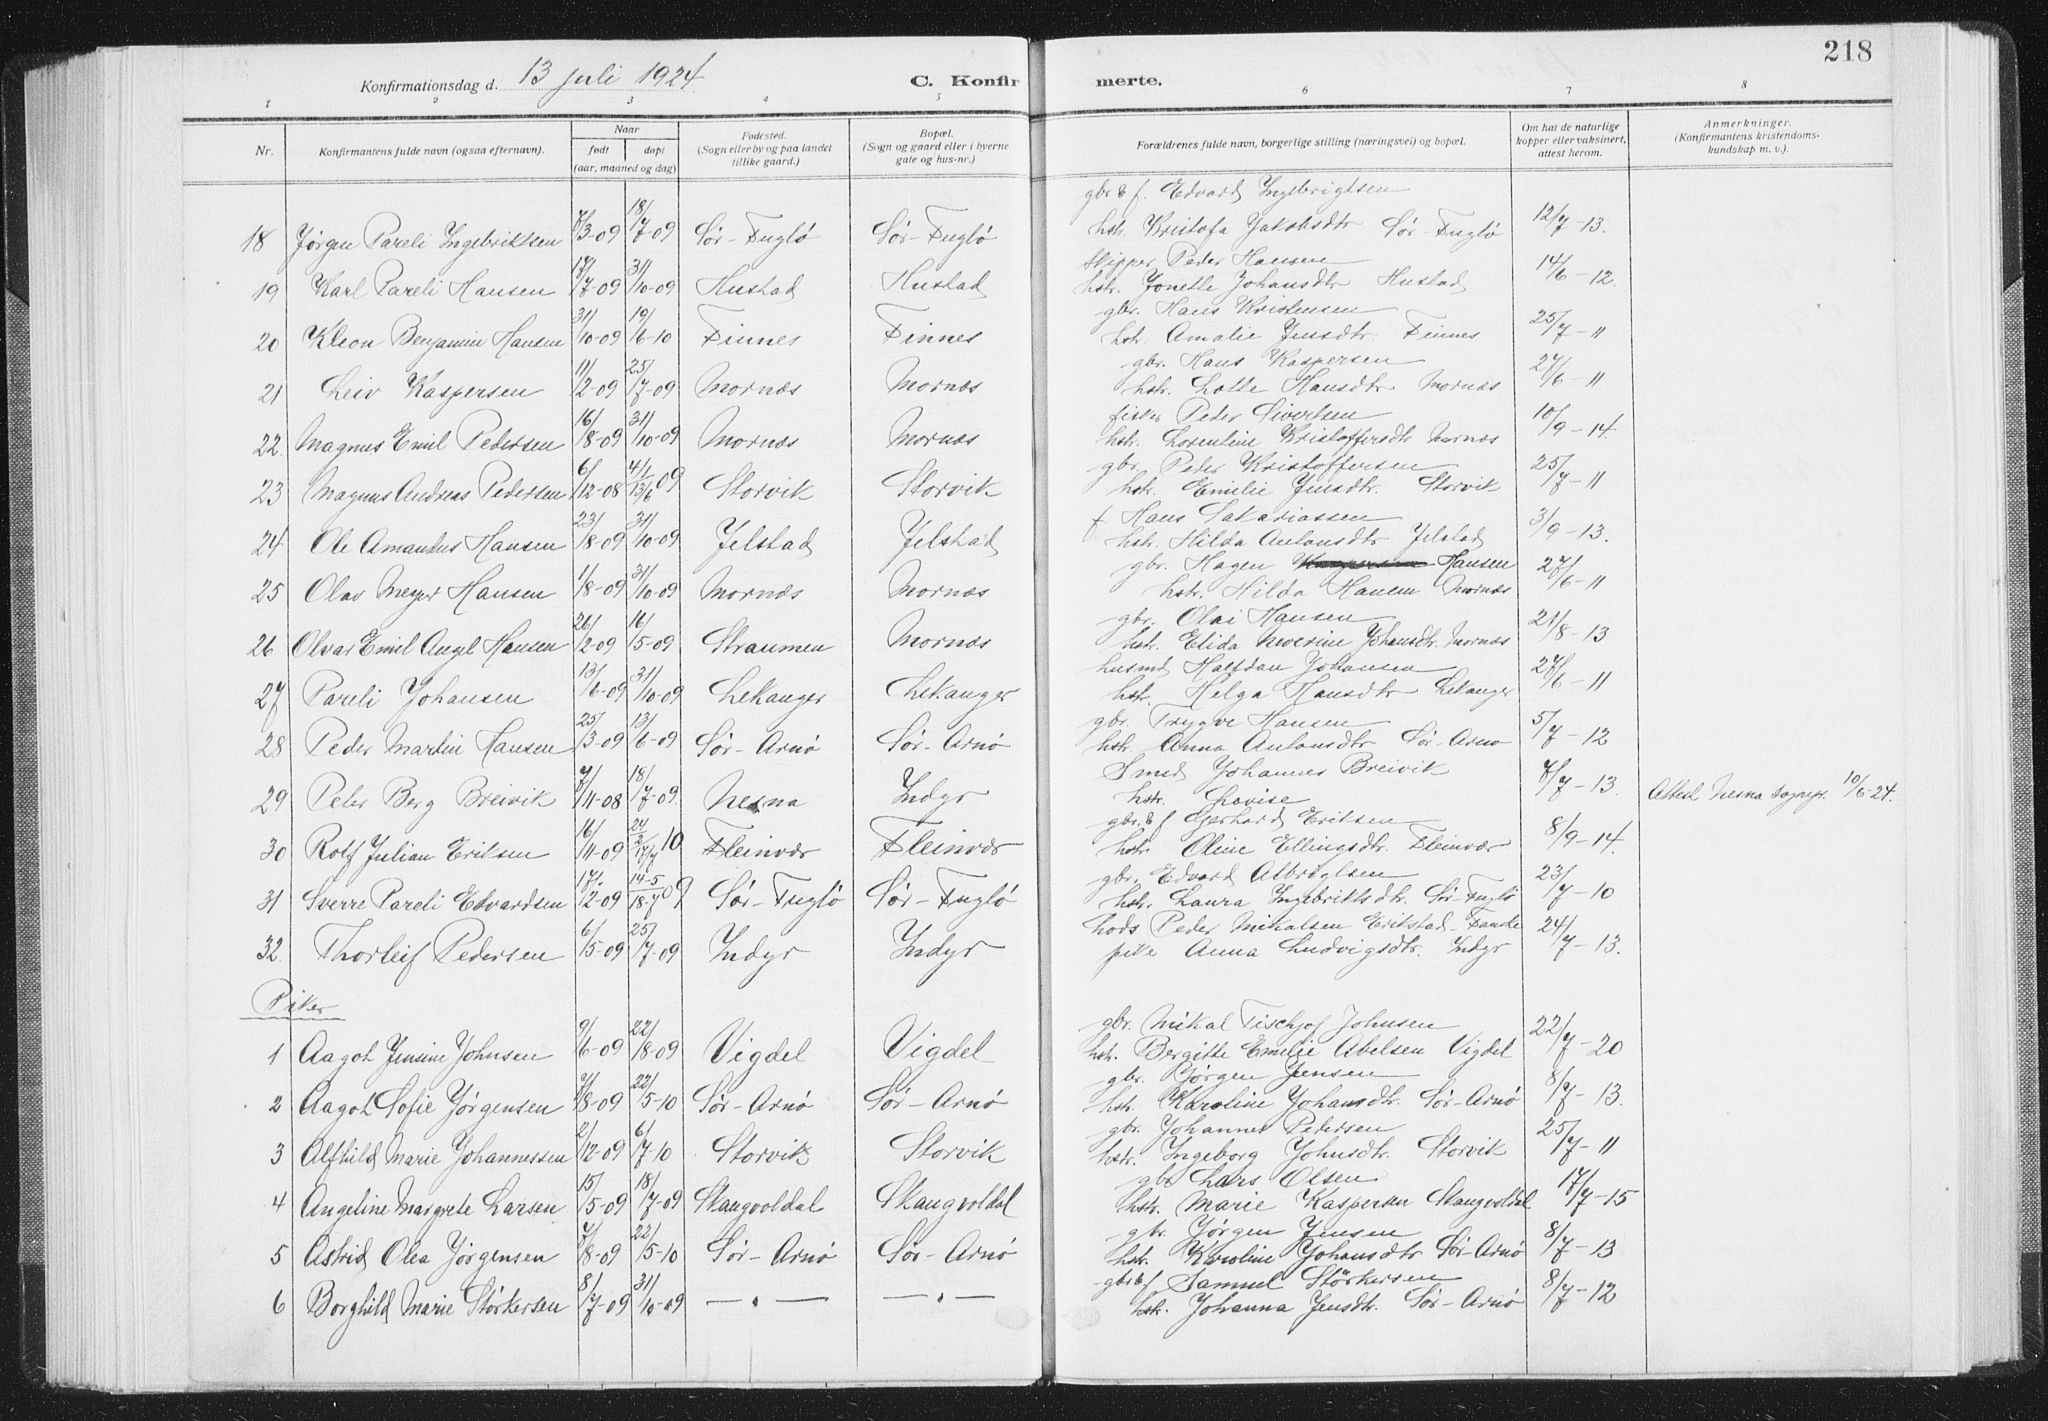 218
Konfirmationsdag d. 13 juli 1924 C. Konfirmerte.
1 2 3 4 5 6 7 8
Nr. Konfirmantens fulde navn (ogsaa efternavn). Naar født døpt (aar, maaned og dag) Fødested. (Sogn eller by og paa landet tillike gaard.) Bopæl. (Sogn og gaard eller i byerne gate og hus-nr.) Forældrenes fulde navn, borgerlige stilling (næringsvei) og bopæl. Om hat de naturlige kopper eller vaksinert, attest herom. Anmerkninger. (Konfirmantens kristendomskundskap m. v.)
gbr & f. Edvard Ingebrigtsen
18 Jørgen Pareli Ingebriktsen 7/3-09 18/7-09 Sør-Fuglø Sør-Fuglø hstr. Kristofa Jakobsdtr Sør-Fuglø 12/7-13.
Skipper Peder Hansen
19 Karl Pareli Hansen 17/7-09 31/10-09 Hustad Hustad hstr. Jonette Johansdtr Hustad 14/6-12.
gbr. Hans Kristensen
20 Kleon Benjamin Hansen 31/10-09 19/6-10 Finnes Finnes hstr. Amalie Jensdtr. Finnes 25/7-11
gbr. Hans Kaspersen
21 Leiv Kaspersen 11/2-09 25/7-09 Mornæs Mornæs hstr. Lotte Hansdtr Mornæs 27/6-11
fisker Peder Sivertsen
22. Magnus Emil Pedersen 16/8-09 31/10-09 Mornæs Mornæs hstr. Lorentine Kristoffersdtr Mornæs 10/9-14.
gbr. Peder Kristoffersen
23 Magnus Andreas Pedersen 6/12-08 4/1 13/6 09 Storvik Storvik hstr. Emilie Jensdtr. Storvik 25/7-11
f. Hans Sakariassen
24 Ole Amandus Hansen 23/8-09 31/10-09 Jelstad Jelstad hstr. Hilda Antonsdtr Jelstad 3/9-13.
gbr. Hagen Hansen
25 Olav Meyer Hansen 1/8-09 31/10-09 Mornæs Mornæs hstr. Hilda Hansen Mornæs 27/6-11
gbr. Olai Hansen
26 Olvar Emil Angel Hansen 26/2-09 16/5-09 Straumen Mornæs hstr. Elida Neverine Johansdtr. Mornæs 21/8-13
husmd Halfdan Johansen
27 Pareli Johansen 13/6-09 31/10-09 Lekanger Lekanger hstr. Helga Hansdtr Lekanger 27/6-11
gbr. Trygve Hansen
28 Peder Martin Hansen 25/3-09 13/6-09 Sør-Arnø Sør-Arnø hstr. Anna Antonsdtr Sør-Arnø 5/7-12
Smed Johannes Breivik
29 Peter Berg Breivik 7/11-08 18/7-09. Nesna Indyr hstr. Lovise 8/7-13. Attest Nesna sognepr. 10/6-24.
gbr. & f Gerhard Eriksen
30 Rolf Julian Eriksen 16/11-09 24/2 17/7 10 Fleinvær Fleinvær hstr. Oline Ellingsdtr. Fleinvær 8/9-14.
gbr. Edvard Albrigtsen
31 Sverre Pareli Edvardsen 17/2-09 14-5 18-7 09 Sør-Fuglø Sør-Fuglø hstr. Laura Ingebriktsdtr. Sør-Fuglø 23/7-10
Peder Mikalsen Erikstad-Fauske
32. Thorleif Pedersen 6/5-09 25/7-09 Indyr Indyr pike Anna Ludvigsdtr. Indyr 24/7-13.
Piker
gbr. Mikal Fischjof Johnsen
1 Aagot Jensine Johnsen 9/6-09 22/8-09 Vigdel Vigdel hstr. Bergitte Emelie Abelsen Vigdel 22/7-20
gbr. Jørgen Jensen
2 Aagot Sofie Jørgensen 7/8-09 22/5-10 Sør-Arnø Sør-Arnø hstr. Karoline Johansdtr. Sør-Arnø 8/7-13.
gbr. Johannes Pedersen
3 Alfhild Marie Johannessen 2/12-09 6/7-10 Storvik Storvik hstr. Ingeborg Johnsdtr. Storvik 25/7-11
gbr Lars Olsen
4 Angeline Margrete Larsen 15/5-09 18/7-09 Skaugvoldal Skaugvoldal hstr. Marie Kaspersen Skaugvoldal 17/7-15
gbr. Jørgen Jensen
5 Astrid Olea Jørgensen 7/8-09 22/5-10 Sør-Arnø Sør-Arnø hstr. Karoline Johansdtr Sør-Arnø 8/7-13
gbr & f Samuel Størkersen
6 Borghild Marie Størkersen 8/7-09 31/10-09 — " — — " — hstr. Johanna Jensdtr. Sør-Arnø 8/7-12